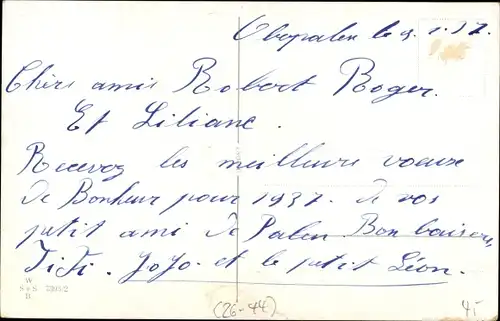 Oberpalen le 9. 1. 37.
Chèrs amis Robert Roger.
Et Liliane.
Recevez les meilleurs voeux
de Bonheur pour 1937. de vos
petit ami de Palen. Bon baisers,
TiTi. JoJo. et le petit Léon.
W
S e S. 7303/2
B.
(26-44)